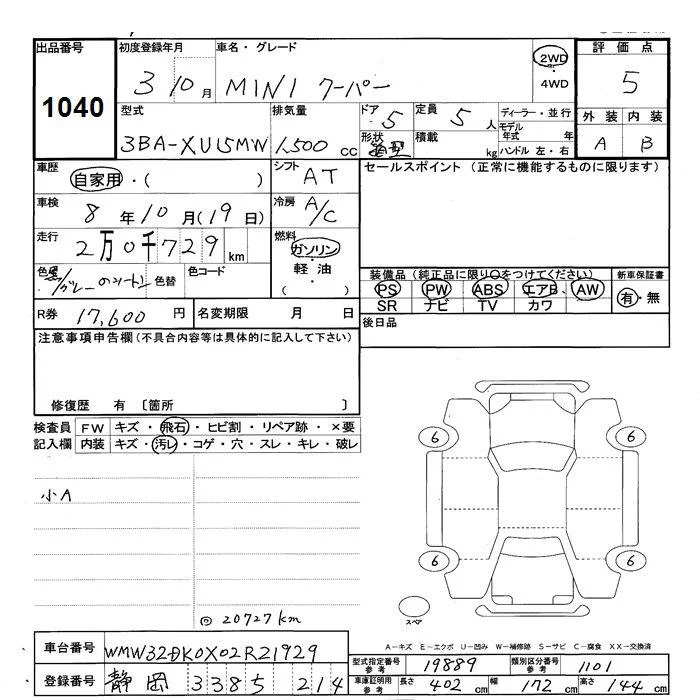 出品番号 初度登録年月 車名・グレード 評価点
1040 3 10月 MINI クーパー 2WD 4WD 5
型式 排気量 ドア 5 定員 5人 ディーラー・並行 外装 内装
3BA-XU15MW 1,500cc 形状 積載 kg モデル年式 年 ハンドル 左・右 A B
車歴 自家用・( ) シフト AT セールスポイント (正常に機能するものに限ります)
車検 8年10月(19日) 冷房 A/C
走行 2万0千729km 燃料 ガソリン・軽油・( )
色 黒/グレーのツートン 色替 色コード
装備品(純正品に限り○をつけてください) 新車保証書
PS PW ABS エアB AW 有・無
SR ナビ TV カワ
R券 17,600円 名変期限 月 日 後日品
注意事項申告欄(不具合内容等は具体的に記入して下さい)
修復歴 有 〔箇所 〕
検査員 FW キズ・飛石・ヒビ割・リペア跡・×要
記入欄 内装 キズ・汚レ・コゲ・穴・スレ・キレ・破レ
6 6
小A
6 6
スペア
◎ 20727km
A-キズ E-エクボ U-凹み W-補修跡 S-サビ C-腐食 XX-交換済
車台番号 WMW32DK0X02R21929
型式指定番号 参考 19889 類別区分番号 参考 1101
登録番号 静岡 3385 214
車庫証明用 参考 長さ 402cm 幅 172cm 高さ 144cm